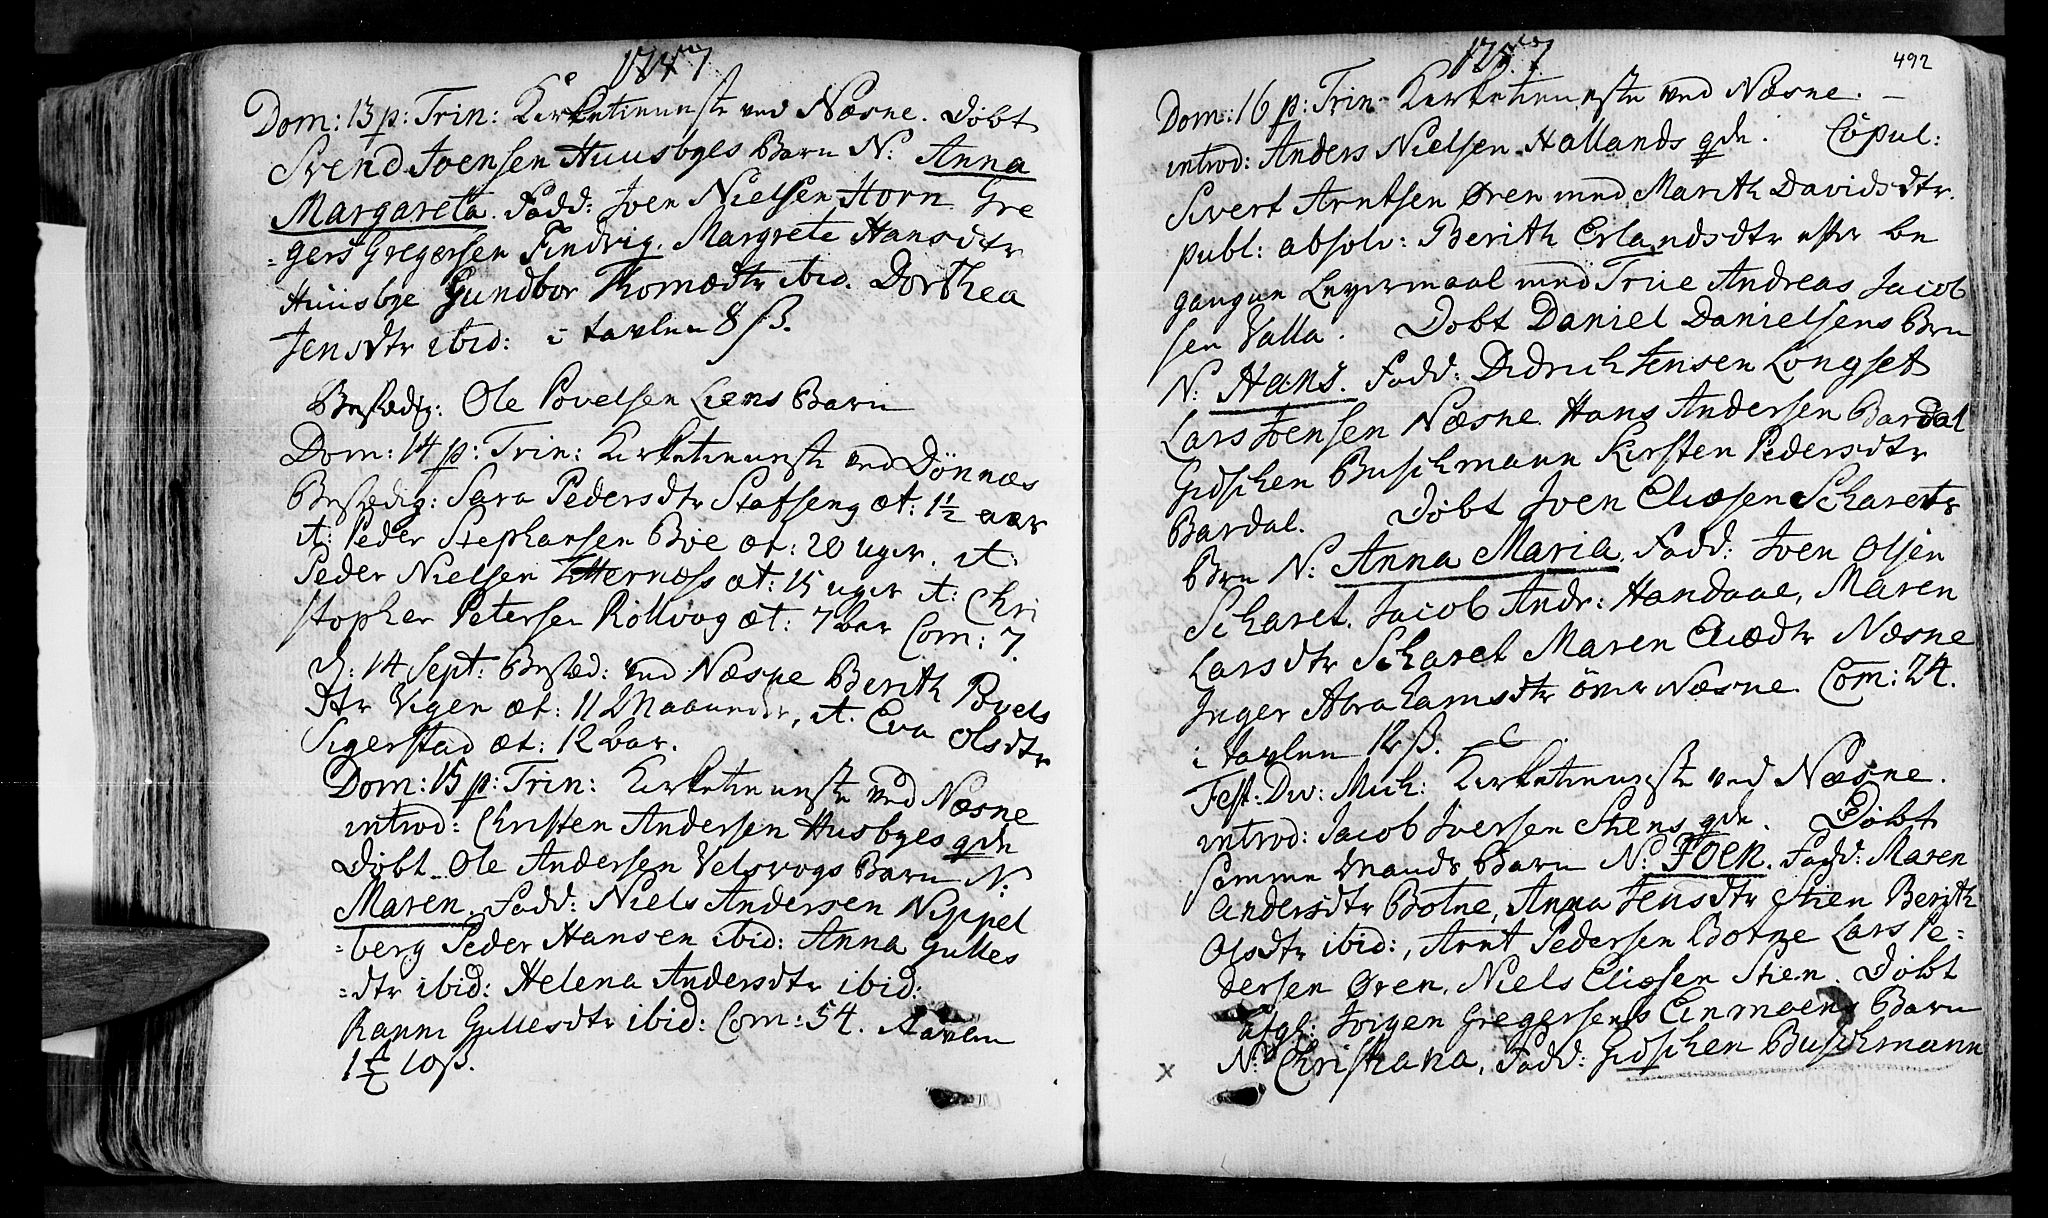 1757
Dom: 13 p: Trin: Kirketienneste ved Næsne. Döbt
Svend Joensen Huusbyes Barn N: Anna
Margareta. Fadd: Joen Nielsen Horn Gre
=gers Gregersen Findvig. Margrete Hansdtr
Huusbye Gundbor Thomædtr ibid. Dorthea
Jensdtr ibid: i tavlen 8 ß.
Begræfv: Ole Povelsen Liens Barn
Dom: 14 p: Trin: Kirketienneste ved Dönnæs
Sara Pedersdtr Stafseng æt: 1½ aar
it: Peder Stephansen Böe æt: 20 uger. it:
Peder Nielsen æt: 15 uger it: Chri
stopher Petersen Rölvog æt: 7 aar Com: 7.
D: 14 Sept: ved Næsne Berith Povels
dtr Vigen æt: 11 Maaneder, it. Eva Olsdtr
Sigerstad æt: 12 aar.
Dom: 15 p: Trin: Kirketienneste ved Næsne
introd: Christen Andersen Husbyes qde
Döbt Ole Andersen Velsvogs Barn N:
Maren. Fadd: Niels Andersen Nyppel
=berg Peder Hansen ibid: Anna Gulles
=dtr ibid: Helena Andersdtr ibid:
Ranni Gullesdtr ibid: Com: 54. Tavlen
1 10 ß.
1757
492
Dom: 16 p: Trin: Kirketienneste ved Næsne. –
introd: Anders Nielsen Hallands qde. Copul:
Sivert Arntsen Øren med Marith Davidsdtr.
publ: absolv: Berith Erlandsdtr efter be
gangen Leyermaal med True Andreas Jacob
sen Valla. Döbt Daniel Danielsens Brn
N: Hans. Fadd: Didrich Jensen Longset
Lars Joensen Næsne Hans Andersen Bardal
Gidschen Buschmann Kirsten Pedersdtr
Bardal. Döbt Joen Eliæsen Scharets
Brn N: Anna Maria. Fadd: Joen Olsen
Scharet. Jacob Andr: Handaae, Maren
Larsdtr Scharet Maren Eliædtr Næsne
Inger Abrahamsdtr över Næsne. Com: 24.
i tavlen 12 ß.
Fest: Div: Mich: Kirketienneste ved Næsne.
introd: Jacob Iversen Stiens qde. Döbt
Samme Mands Barn N: Joen. Fadd: Maren
Andersdtr Botne, Anna Jensdtr Stien Berith
Olsdtr ibid:, Arnt Pedersen Botne Lars Pe=
dersen Øren, Niels Eliæsen Stien. Döbt
Jörgen Greggersens Einmoens Barn
x N: Christiana, Fadd: Gidschen Buschmann